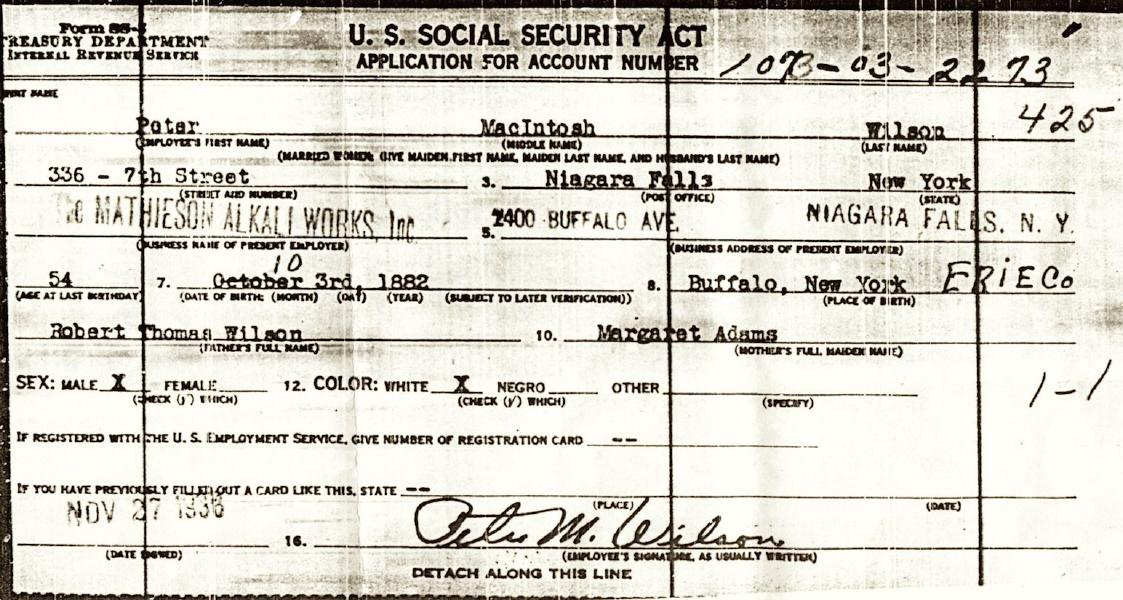 Form SS-
TREASURY DEPARTMENT
INTERNAL REVENUE SERVICE
U. S. SOCIAL SECURITY ACT
APPLICATION FOR ACCOUNT NUMBER
073-03-2273
NAME
425
Peter MacIntosh Wilson
(EMPLOYEE'S FIRST NAME) (MIDDLE NAME) (LAST NAME)
(MARRIED WOMEN: GIVE MAIDEN FIRST NAME, MAIDEN LAST NAME, AND HUSBAND'S LAST NAME)
336 - 7th Street 3. Niagara Falls New York
(STREET AND NUMBER) (POST OFFICE) (STATE)
The MATHIESON ALKALI WORKS, Inc 5. 2400 BUFFALO AVE. NIAGARA FALLS, N. Y.
(BUSINESS NAME OF PRESENT EMPLOYER) (BUSINESS ADDRESS OF PRESENT EMPLOYER)
10
54 7. October 3rd, 1882 8. Buffalo, New York ERIE Co
(AGE AT LAST BIRTHDAY) (DATE OF BIRTH: (MONTH) (DAY) (YEAR) (SUBJECT TO LATER VERIFICATION)) (PLACE OF BIRTH)
Robert Thomas Wilson 10. Margaret Adams
(FATHER'S FULL NAME) (MOTHER'S FULL MAIDEN NAME)
SEX: MALE X FEMALE 12. COLOR: WHITE X NEGRO OTHER
(CHECK (✓) WHICH) (CHECK (✓) WHICH) (SPECIFY)
1-1
IF REGISTERED WITH THE U. S. EMPLOYMENT SERVICE, GIVE NUMBER OF REGISTRATION CARD --
IF YOU HAVE PREVIOUSLY FILLED OUT A CARD LIKE THIS, STATE --
(PLACE) (DATE)
NOV 27 1936
16. Peter M. Wilson
(DATE SIGNED) (EMPLOYEE'S SIGNATURE, AS USUALLY WRITTEN)
DETACH ALONG THIS LINE